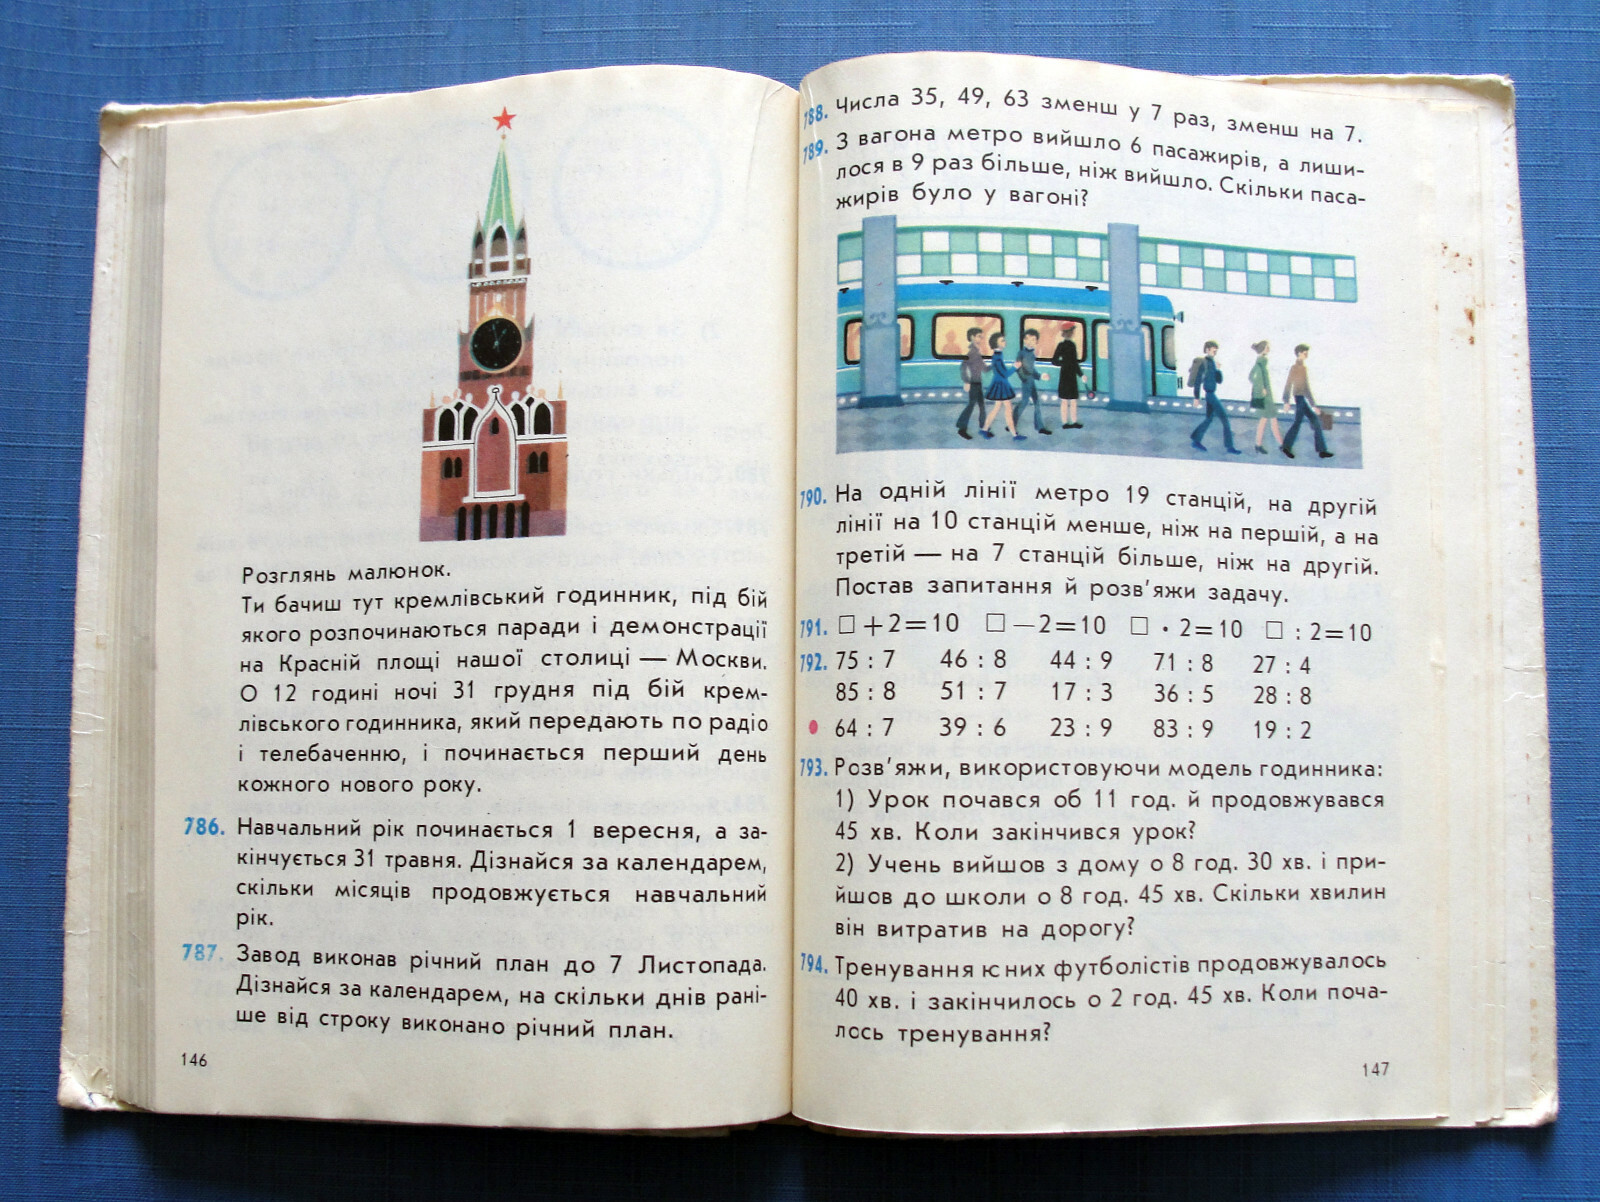 Розглянь малюнок.
Ти бачиш тут кремлівський годинник, під бій
якого розпочинаються паради і демонстрації
на Красній площі нашої столиці — Москви.
О 12 годині ночі 31 грудня під бій крем-
лівського годинника, який передають по радіо
і телебаченню, і починається перший день
кожного нового року.
786. Навчальний рік починається 1 вересня, а за-
кінчується 31 травня. Дізнайся за календарем,
скільки місяців продовжується навчальний
рік.
787. Завод виконав річний план до 7 Листопада.
Дізнайся за календарем, на скільки днів рані-
ше від строку виконано річний план.
146
788. Числа 35, 49, 63 зменш у 7 раз, зменш на 7.
789. З вагона метро вийшло 6 пасажирів, а лиши-
лося в 9 раз більше, ніж вийшло. Скільки паса-
жирів було у вагоні?
790. На одній лінії метро 19 станцій, на другій
лінії на 10 станцій менше, ніж на першій, а на
третій — на 7 станцій більше, ніж на другій.
Постав запитання й розв'яжи задачу.
791. □ + 2 = 10 □ — 2 = 10 □ · 2 = 10 □ : 2 = 10
792. 75 : 7 46 : 8 44 : 9 71 : 8 27 : 4
85 : 8 51 : 7 17 : 3 36 : 5 28 : 8
● 64 : 7 39 : 6 23 : 9 83 : 9 19 : 2
793. Розв'яжи, використовуючи модель годинника:
1) Урок почався об 11 год. й продовжувався
45 хв. Коли закінчився урок?
2) Учень вийшов з дому о 8 год. 30 хв. і при-
йшов до школи о 8 год. 45 хв. Скільки хвилин
він витратив на дорогу?
794. Тренування юних футболістів продовжувалось
40 хв. і закінчилось о 2 год. 45 хв. Коли поча-
лось тренування?
147